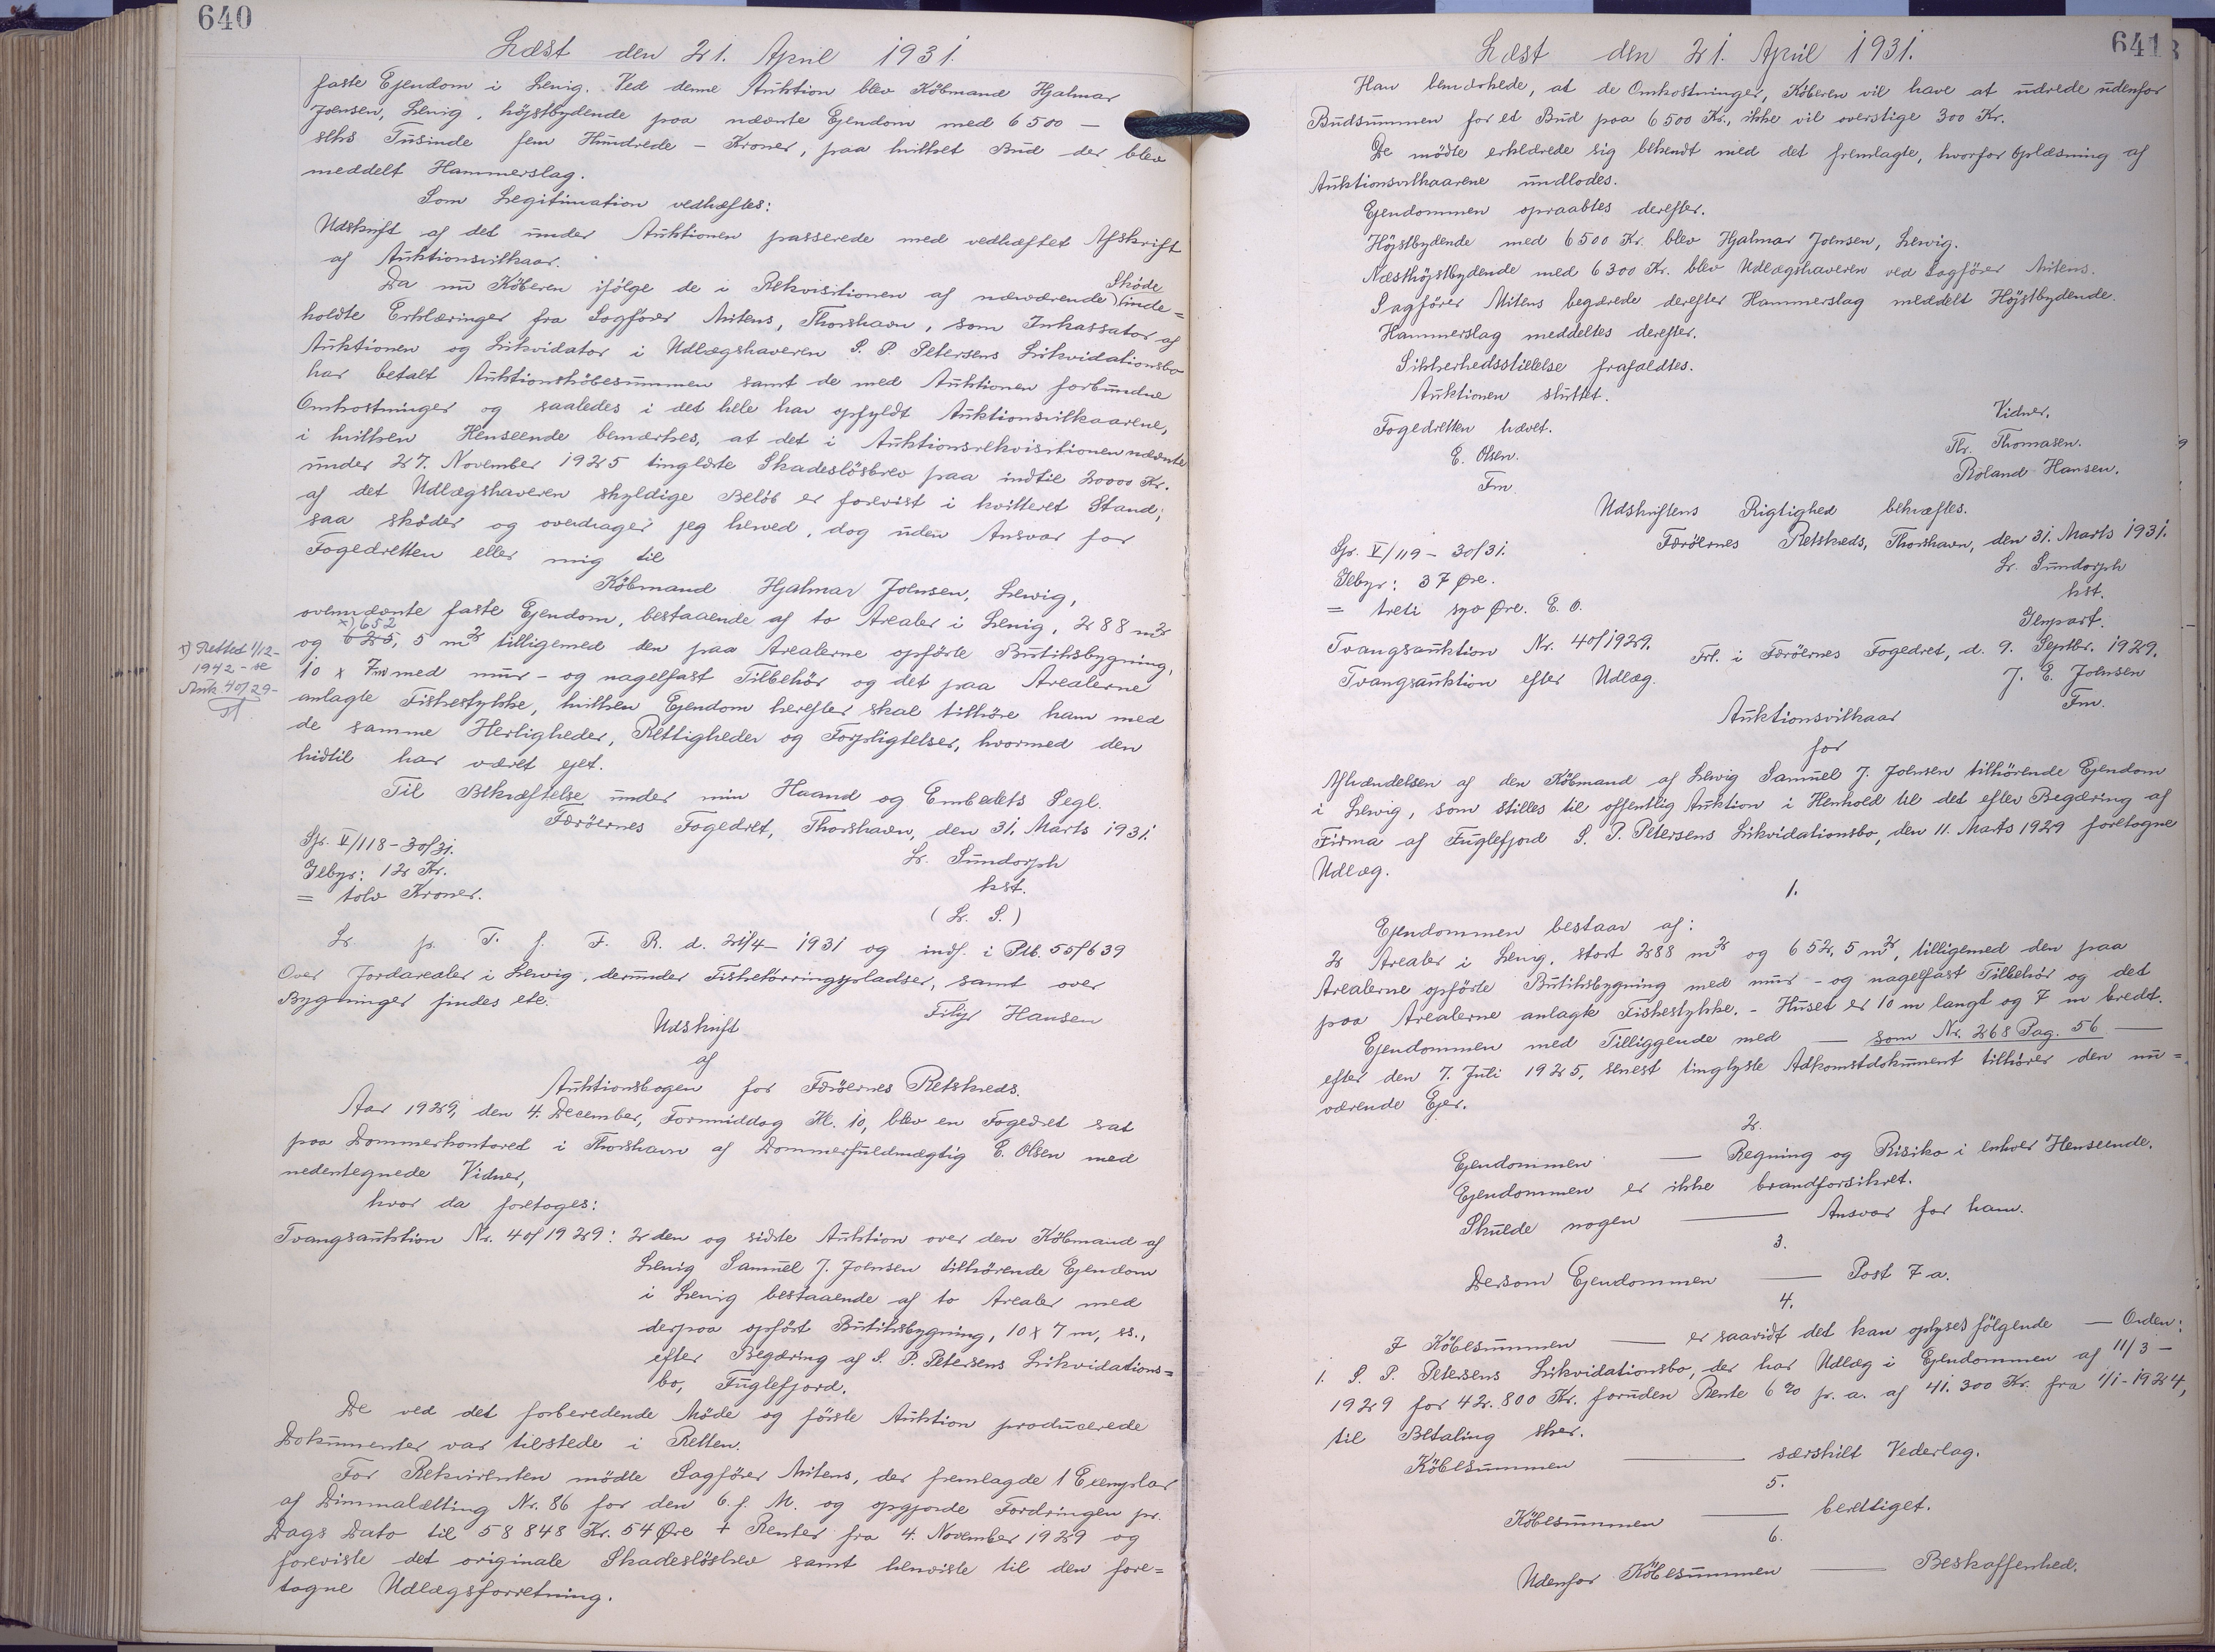 640
Læst den 21. April 1931.
faste Ejendom i Lervig. Ved denne Auktion blev Købmand Hjalmar
Joensen, Lervig, højstbydende paa nævnte Ejendom med 6500 —
seks Tusinde fem Hundrede – Kroner, paa hvilket Bud der blev
meddelt Hammerslag.
Som Legitimation vedhæftes:
Udskrift af det under Auktionen passerede med vedhæftet Afskrift
af Auktionsvilkaar.
Skøde
Da nu Køberen ifølge de i Rekvisitionen af nærværende inde=
holdte Erklæringer fra Sagfører Mitens, Thorshavn, som Inkassator af
Auktionen og Likvidator i Udlægshaveren S. P. Petersens Likvidationsbo
har betalt Auktionskøbesummen samt de med Auktionen forbundne
Omkostninger og saaledes i det hele har opfyldt Auktionsvilkaarene,
i hvilken Henseende bemærkes, at det i Auktionsrekvisitionen nævnte
under 27. November 1925 tinglæste Skadesløsbrev paa indtil 20000 Kr.
af det Udlægshaveren skyldige Beløb er forevist i kvitteret Stand;
saa skøder og overdrager jeg herved, dog uden Ansvar for
Fogedretten eller mig til
Købmand Hjalmar Joensen, Lervig,
ovennævnte faste Ejendom, bestaaende af to Arealer i Lervig, 288 m²
x) 652
og 625, 5 m² tilligemed den paa Arealerne opførte Butiksbygning,
x) Rettet 1/12-
1942 - se
Auk. 40/29-
10 x 7 m med mur- og nagelfast Tilbehør og det paa Arealerne
anlagte Fiskestykke, hvilken Ejendom herefter skal tilhøre ham med
de samme Herligheder, Rettigheder og Forpligtelser, hvormed den
hidtil har været ejet.
Til Bekræftelse under min Haand og Embedets Segl.
Færøernes Fogedret, Thorshavn, den 31. Marts 1931.
Gr. V/118-30/31.
Gebyr: 12 Kr.
= tolv Kroner.
Lr. Sundorph
kst.
(L. S.)
Lr p. T. f. F. R. d. 21/4- 1931 og indf. i Ptb. 55/639
Over Jordarealer i Lervig, derunder Fisketørringspladser, samt over
Bygninger findes etc.
Filip Hansen
Udskrift
af
Auktionsbogen for Færøernes Retskreds.
Aar 1929, den 4. December, Formiddag Kl. 10, blev en Fogedret sat
paa Dommerkontoret i Thorshavn af Dommerfuldmægtig E. Olsen med
nedentegnede Vidner,
hvor da foretoges:
Tvangsauktion Nr. 40/1929: 2den og sidste Auktion over den Købmand af
Lervig Samuel J. Joensen tilhørende Ejendom
i Lervig bestaaende af to Arealer med
derpaa opført Butiksbygning, 10 x 7 m, ss.,
efter Begæring af S. P. Petersens Likvidations=
bo, Fuglefjord.
De ved det forberedende Møde og første Auktion producerede
Dokumenter var tilstede i Retten.
For Rekvirenten mødte Sagfører Mitens, der fremlagde 1 Exemplar
af Dimmalætting Nr. 86 for den 6. f. M. og opgjorde Fordringen pr.
Dags Dato til 58848 Kr. 54 Øre + Renter fra 4. November 1929 og
foreviste det originale Skadesløsbrev samt henviste til den fore=
tagne Udlægsforretning.
641
Læst den 21. April 1931.
Han bemærkede, at de Omkostninger, Køberen vil have at udrede udenfor
Budsummen for et Bud paa 6500 Kr., ikke vil overstige 300 Kr.
De mødte erklærede sig bekendt med det fremlagte, hvorfor Oplæsning af
Auktionsvilkaarene undlodes.
Ejendommen opraabtes derefter.
Højstbydende med 6500 Kr. blev Hjalmar Joensen, Lervig.
Næsthøjstbydende med 6300 Kr. blev Udlægshaveren ved Sagfører Mitens.
Sagfører Mitens begærede derefter Hammerslag meddelt Højstbydende.
Hammerslag meddeltes derefter.
Sikkerhedsstillelse frafaldtes.
Auktionen sluttet.
Fogedretten hævet.
E. Olsen.
Fm.
Vidner.
Thr. Thomasen.
Roland Hansen.
Udskriftens Rigtighed bekræftes.
Færøernes Retskreds, Thorshavn, den 31. Marts 1931.
Gr. V/119-30/31.
Gebyr: 37 Øre.
= treti syv Øre. E. O.
Lr. Sundorph
kst.
Genpart.
Tvangsauktion Nr. 40/1929.
Tvangsauktion efter Udlæg.
Frl. i Færøernes Fogedret, d. 9. Septbr. 1929.
J. E. Joensen
Fm.
Auktionsvilkaar
for
Afhændelsen af den Købmand af Lervig Samuel J. Joensen tilhørende Ejendom
i Lervig, som stilles til offentlig Auktion i Henhold til det efter Begæring af
Firma af Fuglefjord S. P. Petersens Likvidationsbo, den 11. Marts 1929 foretagne
Udlæg.
1.
Ejendommen bestaar af:
2 Arealer i Lervig, stort 288 m² og 652, 5 m², tilligemed den paa
Arealerne opførte Butiksbygning med mur- og nagelfast Tilbehør og det
paa Arealerne anlagte Fiskestykke. - Huset er 10 m langt og 7 m bredt.
Ejendommen med Tilliggende med — som Nr. 268 Pag. 56 —
efter den 7. Juli 1925, senest tinglyste Adkomstdokument tilhører den nu=
værende Ejer.
2.
Ejendommen — Regning og Risiko i enhver Henseende.
Ejendommen er ikke brandforsikret.
Skulde nogen — Ansvar for ham.
3.
Dersom Ejendommen — Post 7 a.
4.
I Købesummen — er saavidt det kan oplyses følgende — Orden:
1. S. P. Petersens Likvidationsbo, der har Udlæg i Ejendommen af 11/3 -
1929 for 42.800 Kr. foruden Rente 6 % pr. a. af 41.300 Kr. fra 1/1-1924,
til Betaling sker.
Købesummen — særskilt Vederlag.
5.
Købesummen — berettiget.
6.
Udenfor Købesummen — Beskaffenhed.